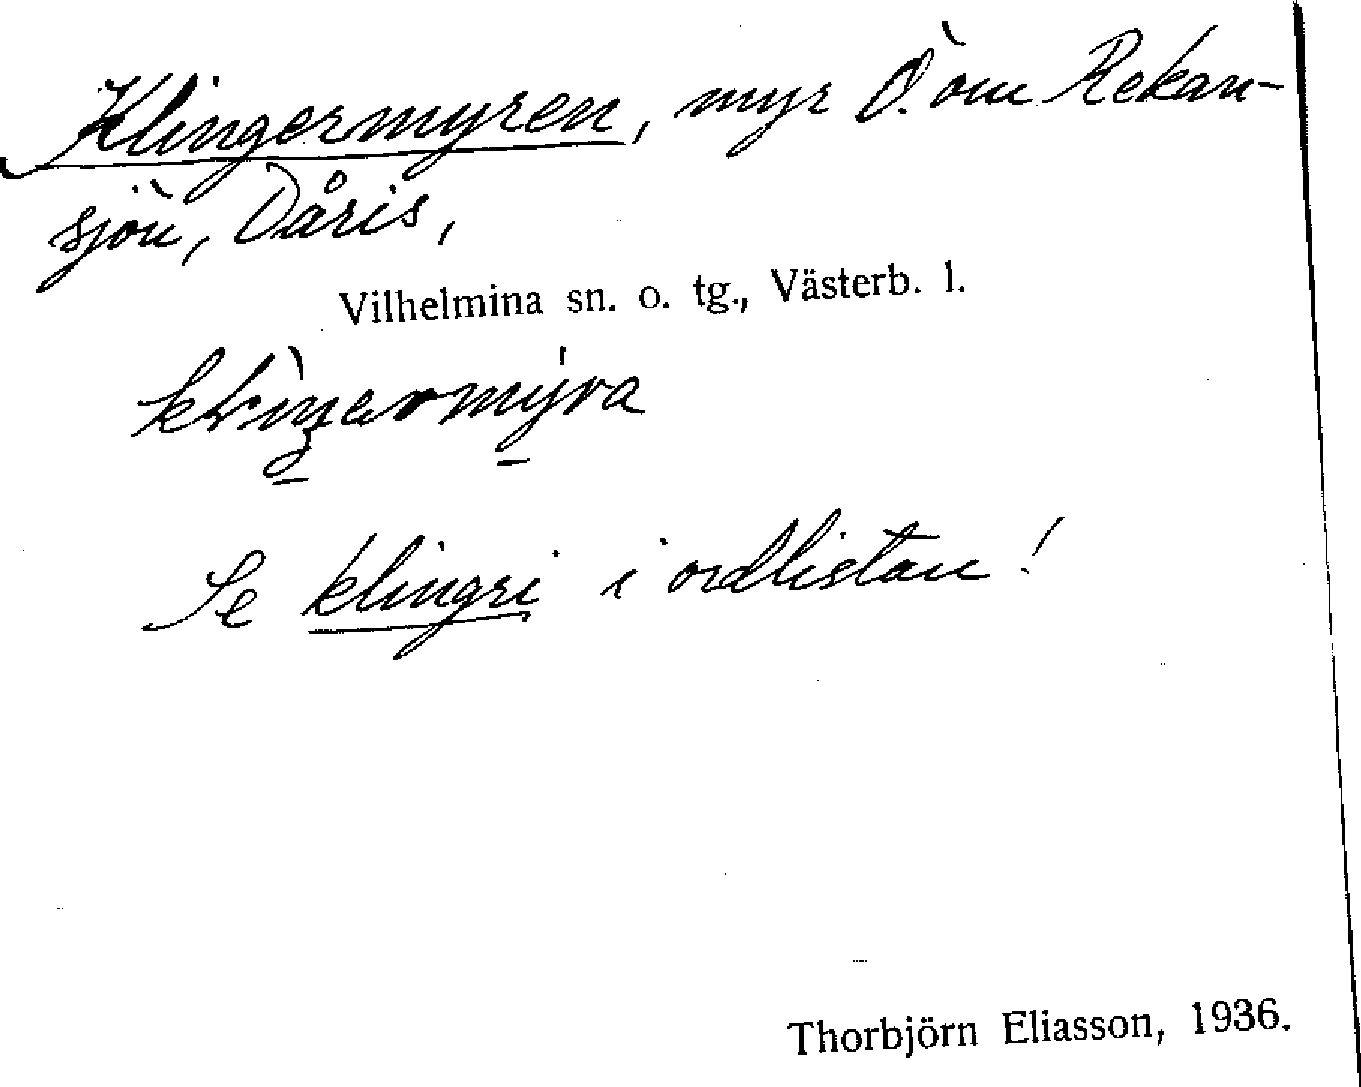 Klingermyren, myr Ö. om Rekan-
sjön, Dåris,
Vilhelmina sn. o. tg., Västerb. l.
Se klingri i ordlistan!
Thorbjörn Eliasson, 1936.